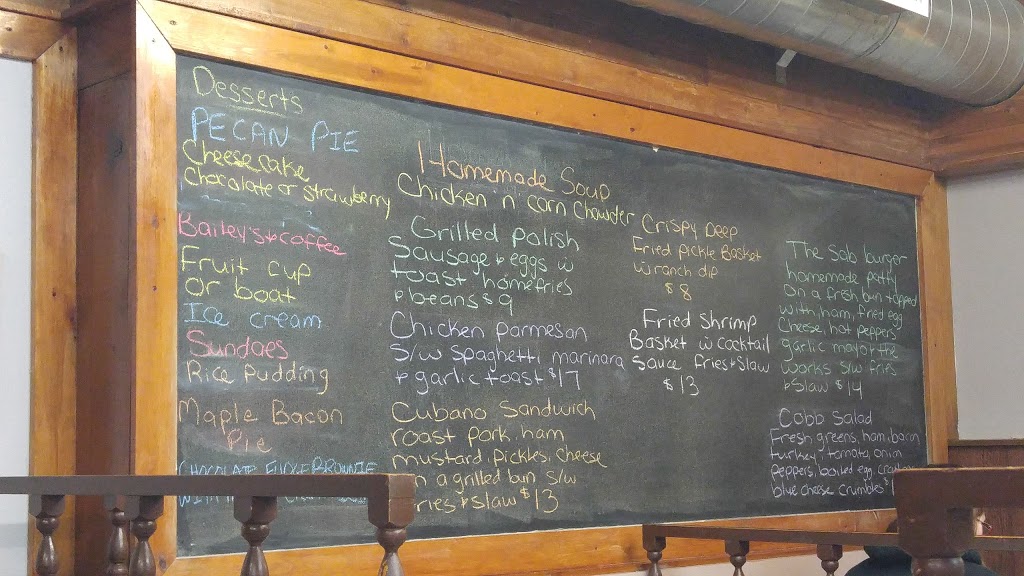 Desserts
PECAN PIE
Cheesecake
chocolate or strawberry
Bailey's + coffee
Fruit cup
or boat
Ice cream
Sundaes
Rice Pudding
Maple Bacon
Pie
CHOCOLATE FUDGE BROWNIE
Homemade Soup
Chicken n' corn chowder
Grilled polish
Sausage + eggs w
toast homefries
+ beans $9
Chicken parmesan
S/w spaghetti marinara
+ garlic toast $17
Cubano Sandwich
roast pork, ham
mustard, pickles, cheese
on a grilled bun s/w
fries + slaw $13
Crispy Deep
Fried pickle Basket
w ranch dip
$8
Fried Shrimp
Basket w cocktail
Sauce fries + slaw
$13
The Solo burger
homemade patty
on a fresh bun topped
with, ham, fried egg
cheese, hot peppers
garlic mayo + the
works s/w fries
+ slaw $14
Cobb Salad
Fresh greens, ham, bacon
turkey, tomato, onion
peppers, boiled egg
blue cheese crumbles